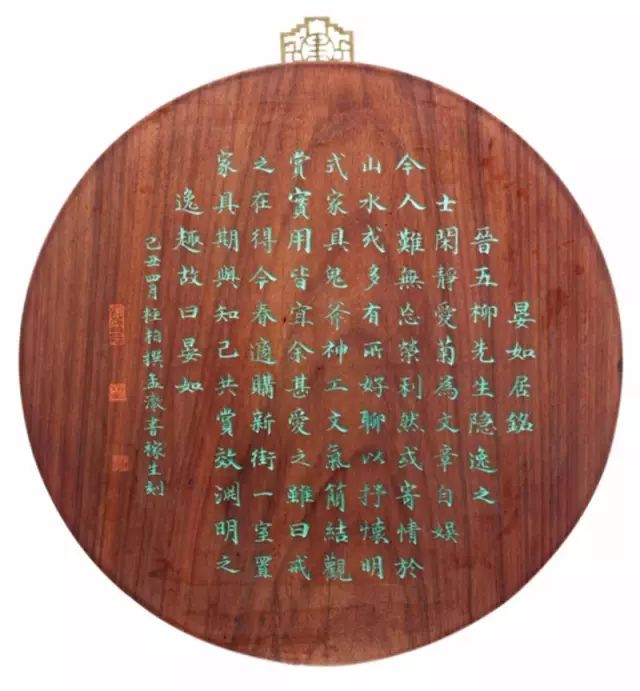 晏如居銘
晉五柳先生隐逸之
士閑靜愛菊為文章自娱
今人難無忘榮利然或寄情於
山水或多有所好聊以抒懷明
式家具鬼斧神工文氣簡結觀
賞實用皆宜余甚愛之雖曰戒
之在得今春適購新街一室置
家具期與知己共賞效淵明之
逸趣故曰晏如
己丑四月柱柏撰孟澂書稼生刻